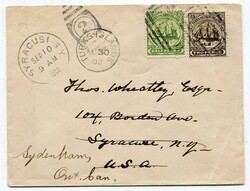 SYRACUSE N.Y.
SEP 10
9 AM
2
TURKS ISLANDS
30
02
Thos. Wheatley, Esqr.
104, Borden Ave.
Syracuse, N.Y.
U.S.A.
Sydenham,
Ont. Can.